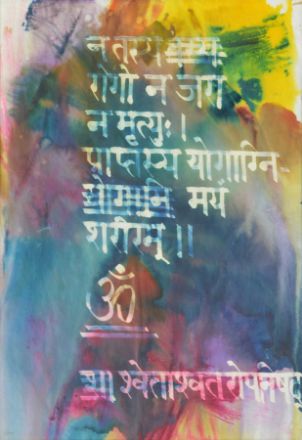 न तस्य
रोगो न जरा
न मृत्युः।
प्राप्तस्य योगाग्नि-
मयं
शरीरम्॥
ॐ
श्वेताश्वतरोपनिषद्